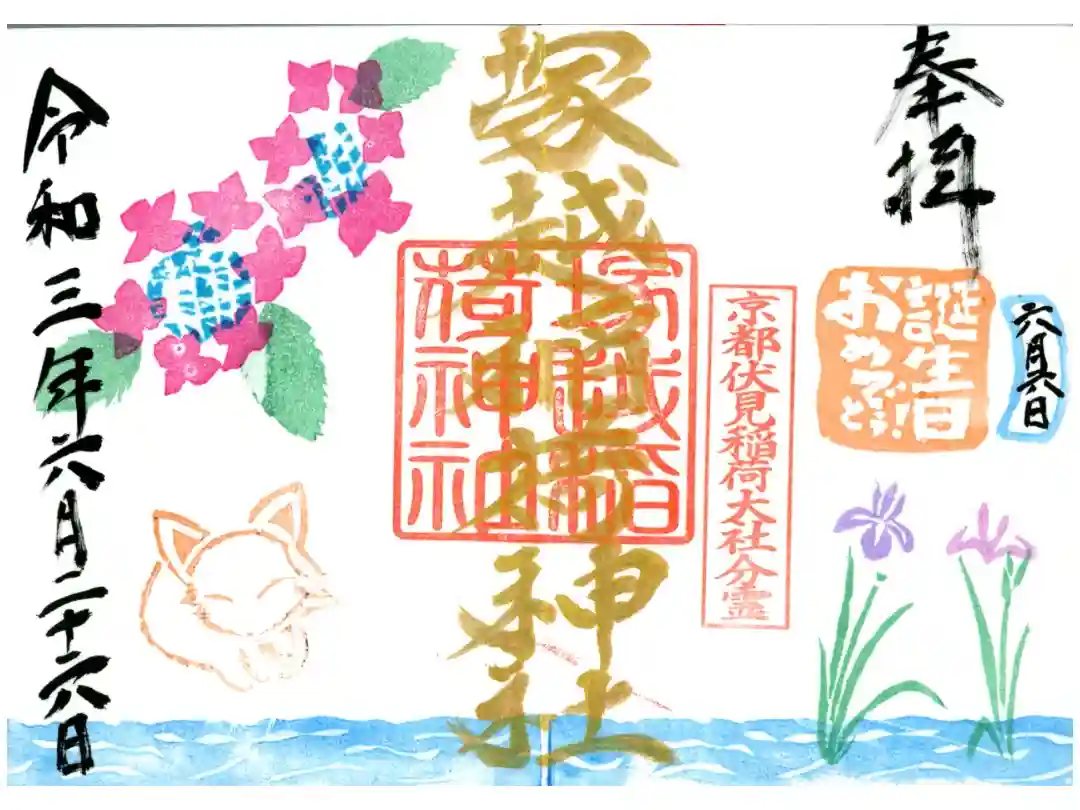 奉拝
六月六日
誕生日
おめでとう!
京都伏見稲荷大社分霊
塚越稲荷神社
塚越稲
荷神社
令和三年六月二十六日